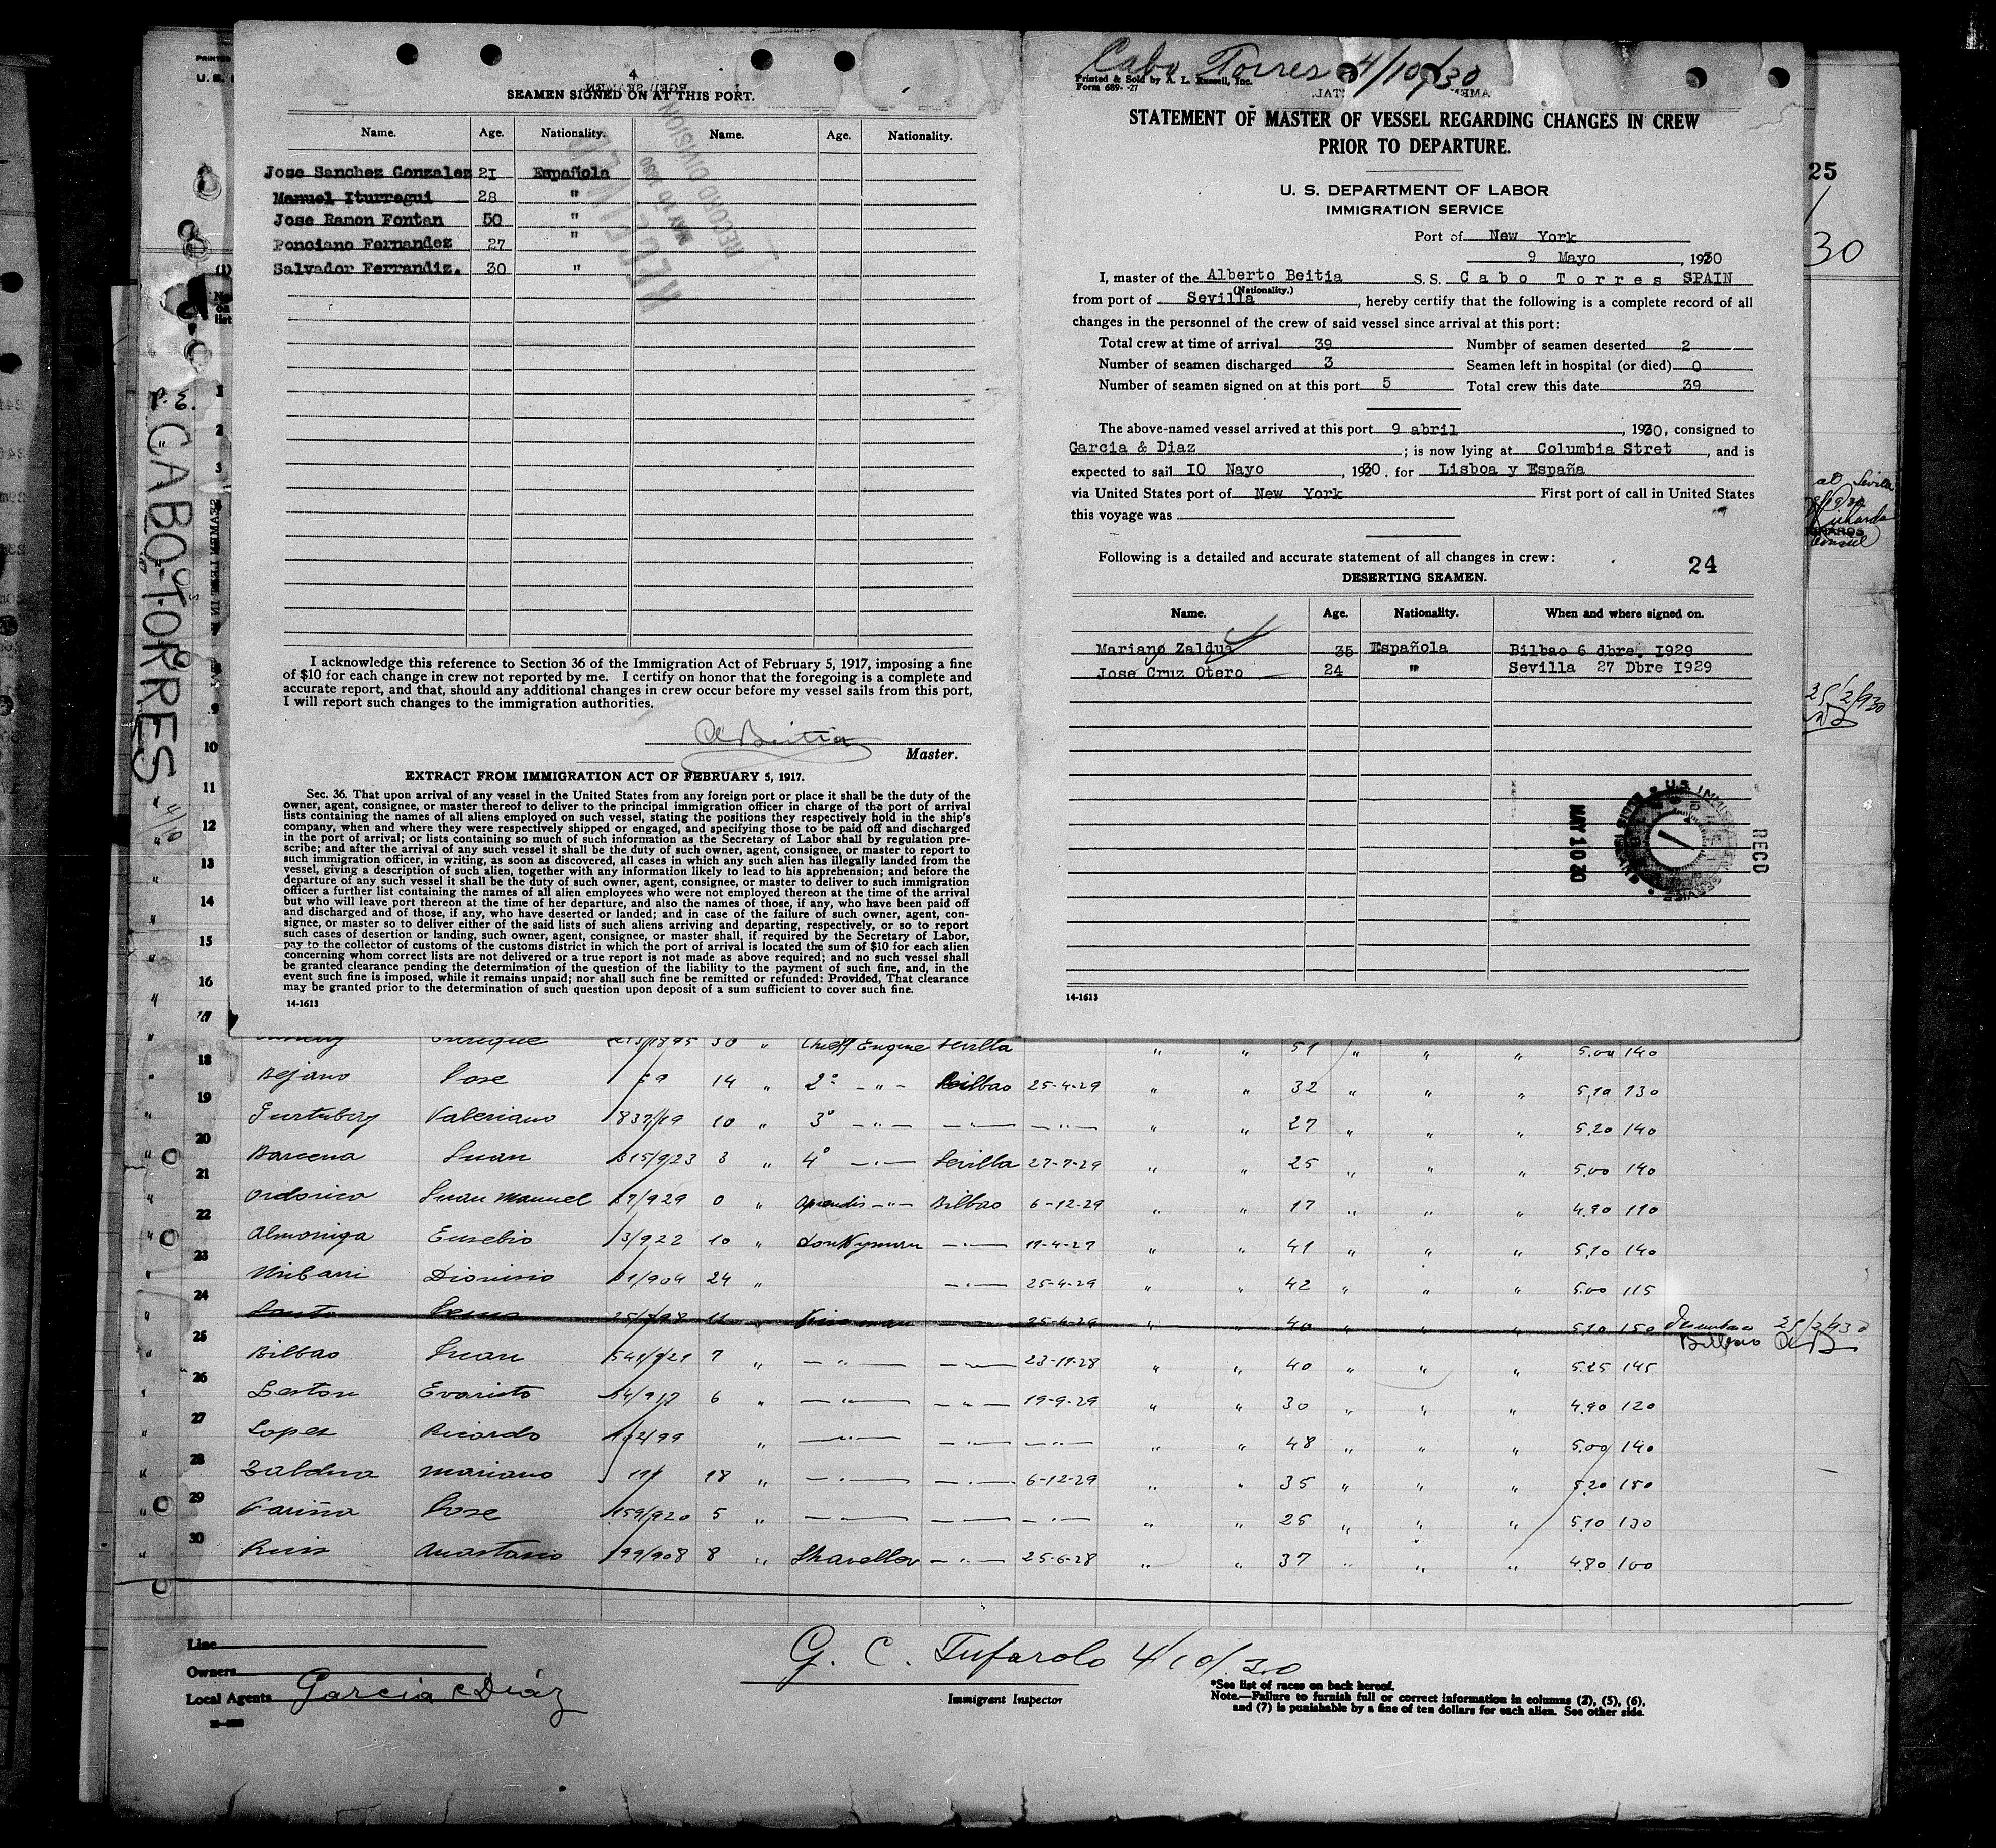 4
SEAMEN SIGNED ON AT THIS PORT.
Name. Age. Nationality. Name. Age. Nationality.
Jose Sanchez Gonzalez 21 Española
Manuel Iturregui 28 "
Jose Ramon Fontan 50 "
Ponciano Fernandez 27 "
Salvador Ferrandiz. 30 "
RECEIVED
MAY 10 1930
RECORD DIVISION
I acknowledge this reference to Section 36 of the Immigration Act of February 5, 1917, imposing a fine
of $10 for each change in crew not reported by me. I certify on honor that the foregoing is a complete and
accurate report, and that, should any additional changes in crew occur before my vessel sails from this port,
I will report such changes to the immigration authorities.
A Beitia
Master.
EXTRACT FROM IMMIGRATION ACT OF FEBRUARY 5, 1917.
Sec. 36. That upon arrival of any vessel in the United States from any foreign port or place it shall be the duty of the
owner, agent, consignee, or master thereof to deliver to the principal immigration officer in charge of the port of arrival
lists containing the names of all aliens employed on such vessel, stating the positions they respectively hold in the ship's
company, when and where they were respectively shipped or engaged, and specifying those to be paid off and discharged
in the port of arrival; or lists containing so much of such information as the Secretary of Labor shall by regulation pre-
scribe; and after the arrival of any such vessel it shall be the duty of such owner, agent, consignee, or master to report to
such immigration officer, in writing, as soon as discovered, all cases in which any such alien has illegally landed from the
vessel, giving a description of such alien, together with any information likely to lead to his apprehension; and before the
departure of any such vessel it shall be the duty of such owner, agent, consignee, or master to deliver to such immigration
officer a further list containing the names of all alien employees who were not employed thereon at the time of the arrival
but who will leave port thereon at the time of her departure, and also the names of those, if any, who have been paid off
and discharged and of those, if any, who have deserted or landed; and in case of the failure of such owner, agent, con-
signee, or master so to deliver either of the said lists of such aliens arriving and departing, respectively, or so to report
such cases of desertion or landing, such owner, agent, consignee, or master shall, if required by the Secretary of Labor,
pay to the collector of customs of the customs district in which the port of arrival is located the sum of $10 for each alien
concerning whom correct lists are not delivered or a true report is not made as above required; and no such vessel shall
be granted clearance pending the determination of the question of the liability to the payment of such fine, and, in the
event such fine is imposed, while it remains unpaid; nor shall such fine be remitted or refunded: Provided, That clearance
may be granted prior to the determination of such question upon deposit of a sum sufficient to cover such fine.
14-1613
Cabo Torres 4/10/30
Printed & Sold by A. L. Russell, Inc.
Form 689- -27
STATEMENT OF MASTER OF VESSEL REGARDING CHANGES IN CREW
PRIOR TO DEPARTURE.
U. S. DEPARTMENT OF LABOR
IMMIGRATION SERVICE
Port of New York
9 Mayo , 1930
I, master of the Alberto Beitia S. S. Cabo Torres SPAIN
(Nationality.)
from port of Sevilla , hereby certify that the following is a complete record of all
changes in the personnel of the crew of said vessel since arrival at this port:
Total crew at time of arrival 39 Number of seamen deserted 2
Number of seamen discharged 3 Seamen left in hospital (or died) 0
Number of seamen signed on at this port 5 Total crew this date 39
The above-named vessel arrived at this port 9 abril , 1930, consigned to
Garcia & Diaz ; is now lying at Columbia Stret , and is
expected to sail 10 Nayo , 1930. for Lisboa y España
via United States port of New York First port of call in United States
this voyage was
Following is a detailed and accurate statement of all changes in crew: 24
DESERTING SEAMEN.
Name. Age. Nationality. When and where signed on.
Mariano Zaldua 35 Española Bilbao 6 dbre. 1929
Jose Cruz Otero 24 " Sevilla 27 Dbre 1929
RECD
MAY 10 30
14-1613
25
30
at Sevilla
25/2/930
CABO-TORRES - 4/10
18 Enrique 30 " Chieff Engine Sevilla " " 51 " " " 5.00 140
19 Bejano Jose 14 " 2º - " - Bilbao 25-4-29 " " 32 " " " 5.10 130
20 Valeriano 10 " 3º - " - - " - - " - " " 27 " " " 5.20 140
21 Barcena Juan 3 " 4º - " - Sevilla 27-7-29 " " 25 " " " 5.00 140
22 Ordorica Juan Manuel 0 " - " - Bilbao 6-12-29 " " 17 " " " 4.90 110
23 Almoniga Eusebio 13/922 10 " Donkyman - " - 11-4-27 " " 41 " " " 5.10 140
24 Uribarri Dionisio 24 " - " - 25-4-29 " " 42 " " " 5.00 115
25-4-29 " " 40 " " " 5.10 150 25/2/930
Bilbao AB
25 Bilbao Juan 7 " - " - - " - 23-11-28 " " 40 " " " 5.25 145
26 Leston Evaristo 6 " - " - - " - 19-9-29 " " 30 " " " 4.90 120
27 Lopez Ricardo " - " - - " - - " - " " 48 " " " 5.00 140
28 Zaldua Mariano 18 " - " - - " - 6-12-29 " " 35 " " " 5.20 150
29 Fariña Jose 159/920 5 " - " - - " - - " - " " 25 " " " 5.10 130
30 Ruiz Anastasio 199/908 8 " - " - 25-6-28 " " 37 " " " 4.80 100
Line
Owners
Local Agents Garcia & Diaz
G. C. Tufarolo 4/10/30
Immigrant Inspector
*See list of races on back hereof.
Note.—Failure to furnish full or correct information in columns (2), (5), (6),
and (7) is punishable by a fine of ten dollars for each alien. See other side.